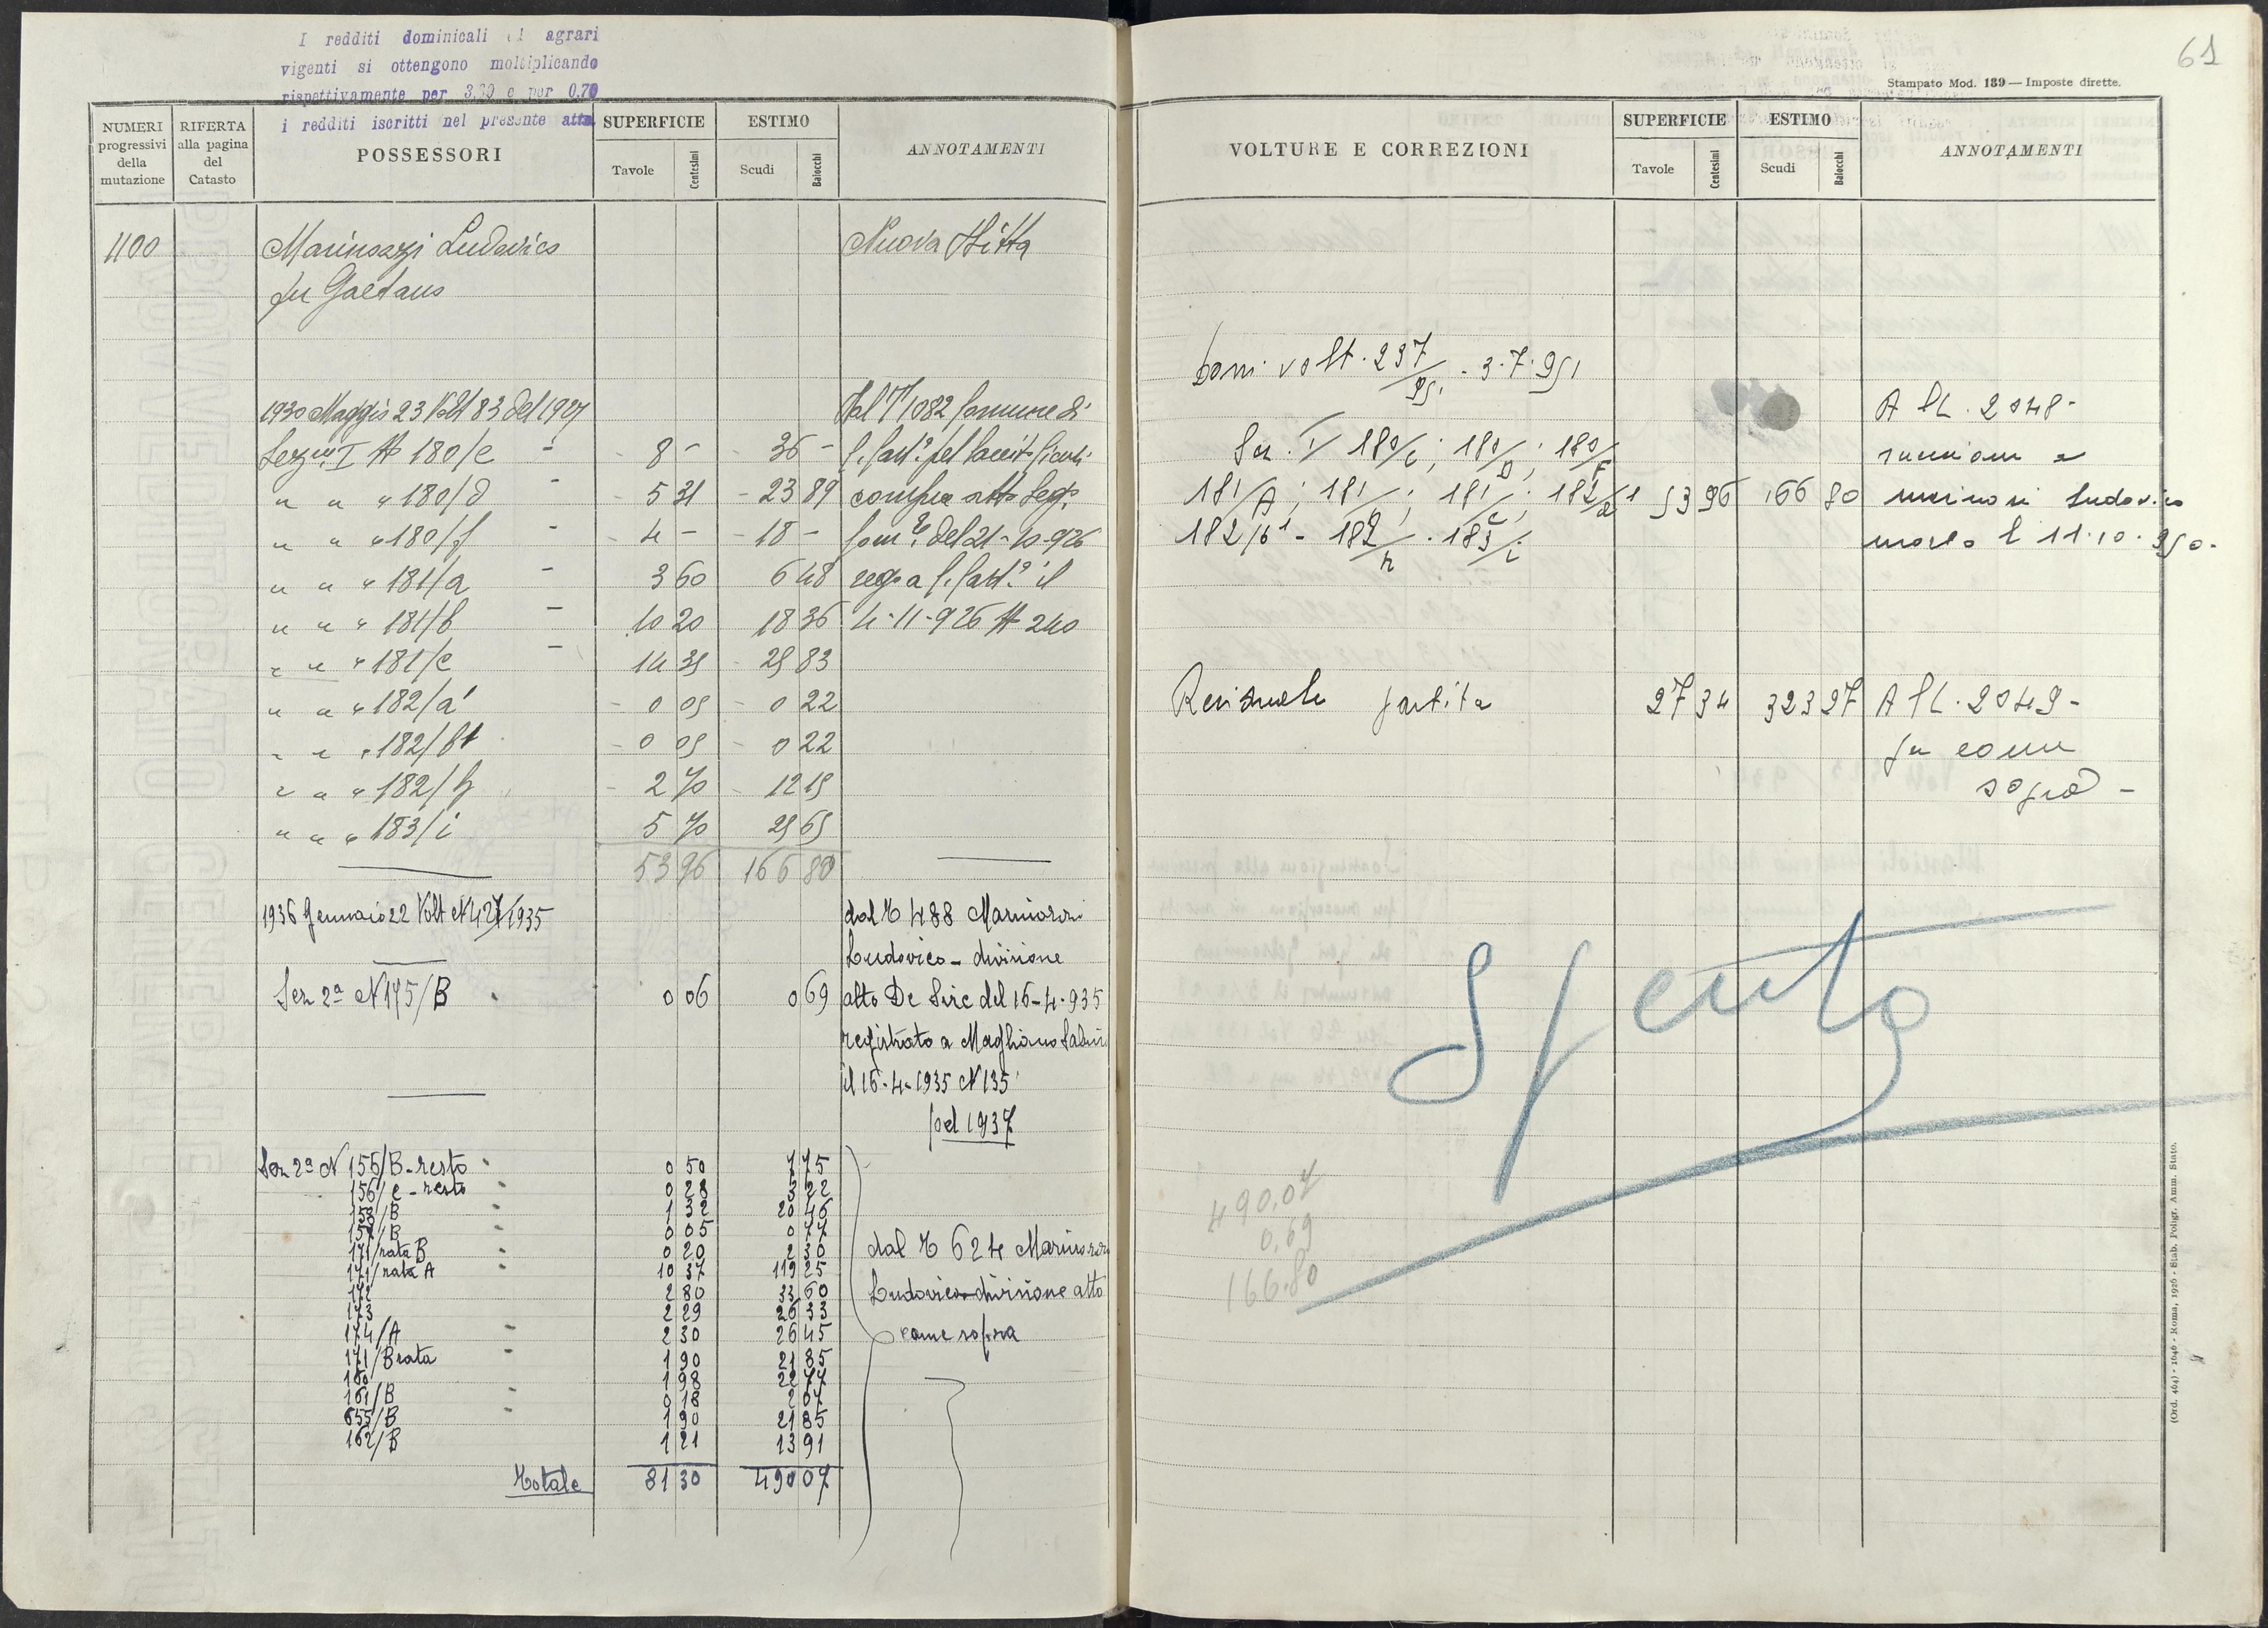 I redditi dominicali ed agrari
vigenti si ottengono moltiplicando
rispettivamente per 3,30 e per 0,70
i redditi iscritti nel presente atto
NUMERI progressivi della mutazione
RIFERTA alla pagina del Catasto
POSSESSORI
SUPERFICIE
Tavole Centesimi
ESTIMO
Scudi Baiocchi
ANNOTAMENTI
1100 Marinsazzi Ludovico Nuova Ditta
fu Gaetano
1930 Maggio 23 Volt 83 del 1927 Dal T 1082 Comune di
Sezne I N 180/c 8 – 36 –
" " " 180/d 5 31 23 89 compra atto Segr.
" " " 180/f 4 – 18 – del 21-10-926
" " " 181/a 3 60 6 48 reg a C. Cast° il
" " " 181/b 10 20 18 36 4-11-926 N 240
" " " 181/c 14 35 25 83
" " " 182/a' 0 05 0 22
" " " 182/b1 0 05 0 22
" " " 182/h 2 70 12 15
" " " 183/i 5 70 25 65
53 96 166 80
1936 Gennaio 22 Volt N 427/1935 dal T 488 Marinozzi
Ludovico - divisione
Sez 2a N 175/B 0 06 0 69 atto De Sire del 15-4-935
registrato a Magliano Sabin
il 15-4-1935 N 135
pel 1937
Sez 2a N 155/B - resto 0 50 5 75
156/c - resto 0 28 3 22
153/B 1 32 20 46
157/B 0 05 0 77
171/rata B 0 20 2 30 dal T 624 Marinozzi
171/rata A 10 37 119 25
172 2 80 33 60 Ludovico divisione atto
173 2 29 26 33
174/A 2 30 26 45 come sopra
171/B rata 1 90 21 85
160 1 98 22 77
161/B 0 18 2 07
655/B 1 90 21 85
162/B 1 21 13 91
Totale 81 30 490 07
61
Stampato Mod. 139 — Imposte dirette.
VOLTURE E CORREZIONI
SUPERFICIE
Tavole Centesimi
ESTIMO
Scudi Baiocchi
ANNOTAMENTI
Dom. volt. 237/951 - 3.7.951
A P. 2048 -
Sez. I 180/c; 180/D; 180/F riunione a
181/A; 181/B; 181/c; 182/a1 53 96 166 80 Ludovico
182/b1 - 182/h . 183/i morto l 11.10.950.
Residuale partita 27 34 323 27 A P. 2049 -
fu come
sopra -
Spenta
490,07
0,69
166.80
(Ord. 464) - 1646 - Roma, 1926 - Stab. Poligr. Amm. Stato.